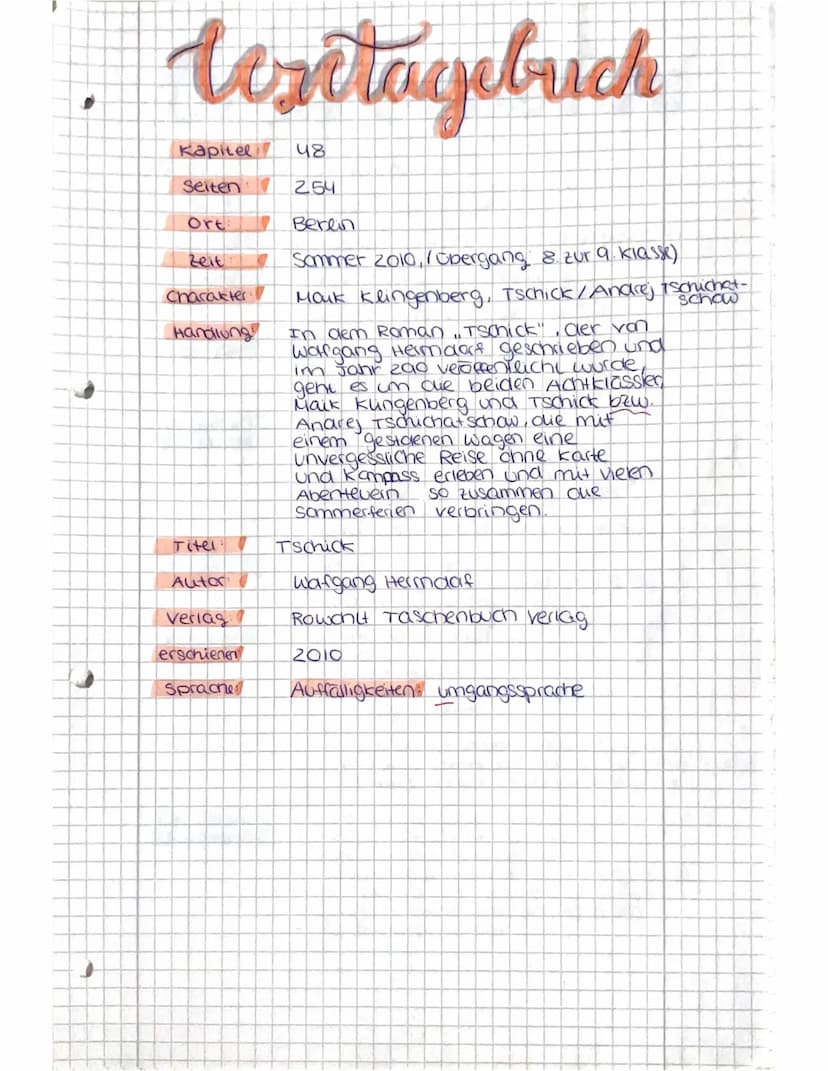 Lesetagebuch
Kapitel: 48
Seiten: 254
Ort: Berlin
Zeit: Sommer 2010, (Übergang 8. zur 9. Klasse)
Charakter: Maik Klingenberg, Tschick / Andrej Tschichat-
schow
Handlung: In dem Roman „Tschick", der von
Wolfgang Herrndorf geschrieben und
im Jahr 2010 veröffentlicht wurde,
geht es um die beiden Achtklässler
Maik Klingenberg und Tschick bzw.
Andrej Tschichatschow, die mit
einem gestolenen Wagen eine
unvergessliche Reise ohne Karte
und Kompass erleben und mit vielen
Abenteuern so zusammen die
Sommerferien verbringen.
Titel: Tschick
Autor: Wolfgang Herrndorf
Verlag: Rowohlt Taschenbuch Verlag
erschienen: 2010
Sprache: Auffälligkeiten: umgangssprache